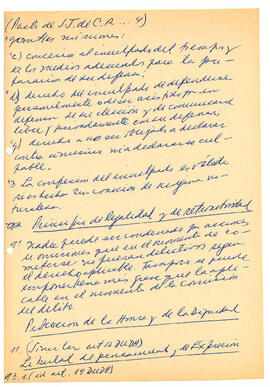 (Pacto de S.J. de C.R. ... 4)
garantías mínimas:
"c) concesión al inculpado del tiempo y
de los medios adecuados para la pre-
paración de su defensa;
"d) derecho del inculpado de defenderse
personalmente o de ser asistido por un
defensor de su elección y de comunicarse
libre y privadamente con su defensor;
"g) derecho a no ser obligado a declarar
contra sí mismo ni a declararse cul-
pable.
"3 La confesión del inculpado es válida
si es hecha sin coacción de ninguna na-
turaleza
Principio de legalidad y de retroactividad
9º Nadie puede ser condenado por acciones
u omisiones que en el momento de co-
meterse no fueran delictivos según
el derecho aplicable. Tampoco se puede
imponer pena más grave que la apli-
cable en el momento de la comisión
del delito.
Protección de la Honra y de la Dignidad
11. (Similar art 12 DUDH)
La libertad de pensamiento y de Expresión
13.1. (id art. 19 DUDH)